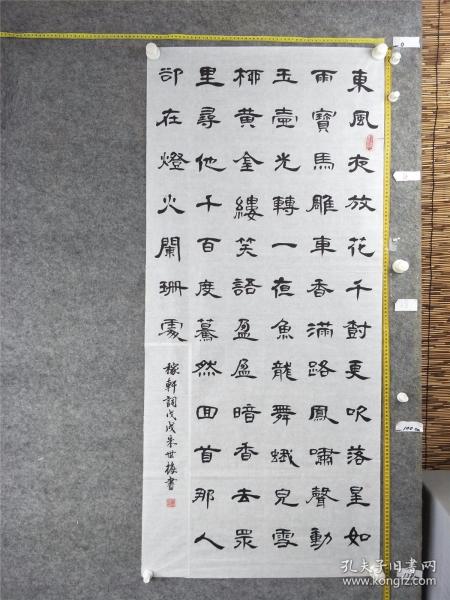 東風夜放花千樹更吹落星如
雨寶馬雕車香滿路鳳嘯聲動
玉壺光轉一夜魚龍舞蛾兒雪
柳黃金縷笑語盈盈暗香去眾
里尋他千百度驀然回首那人
卻在燈火闌珊處
稼軒詞戊戌朱世書
孔夫子旧书网
www.kongfz.com